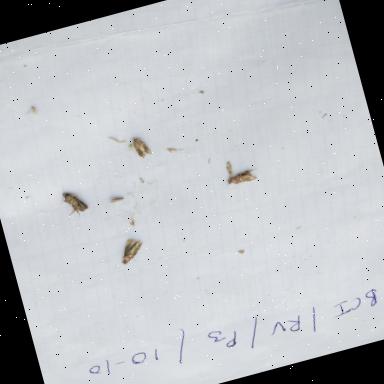 BCI / RV / P3 / 10-10